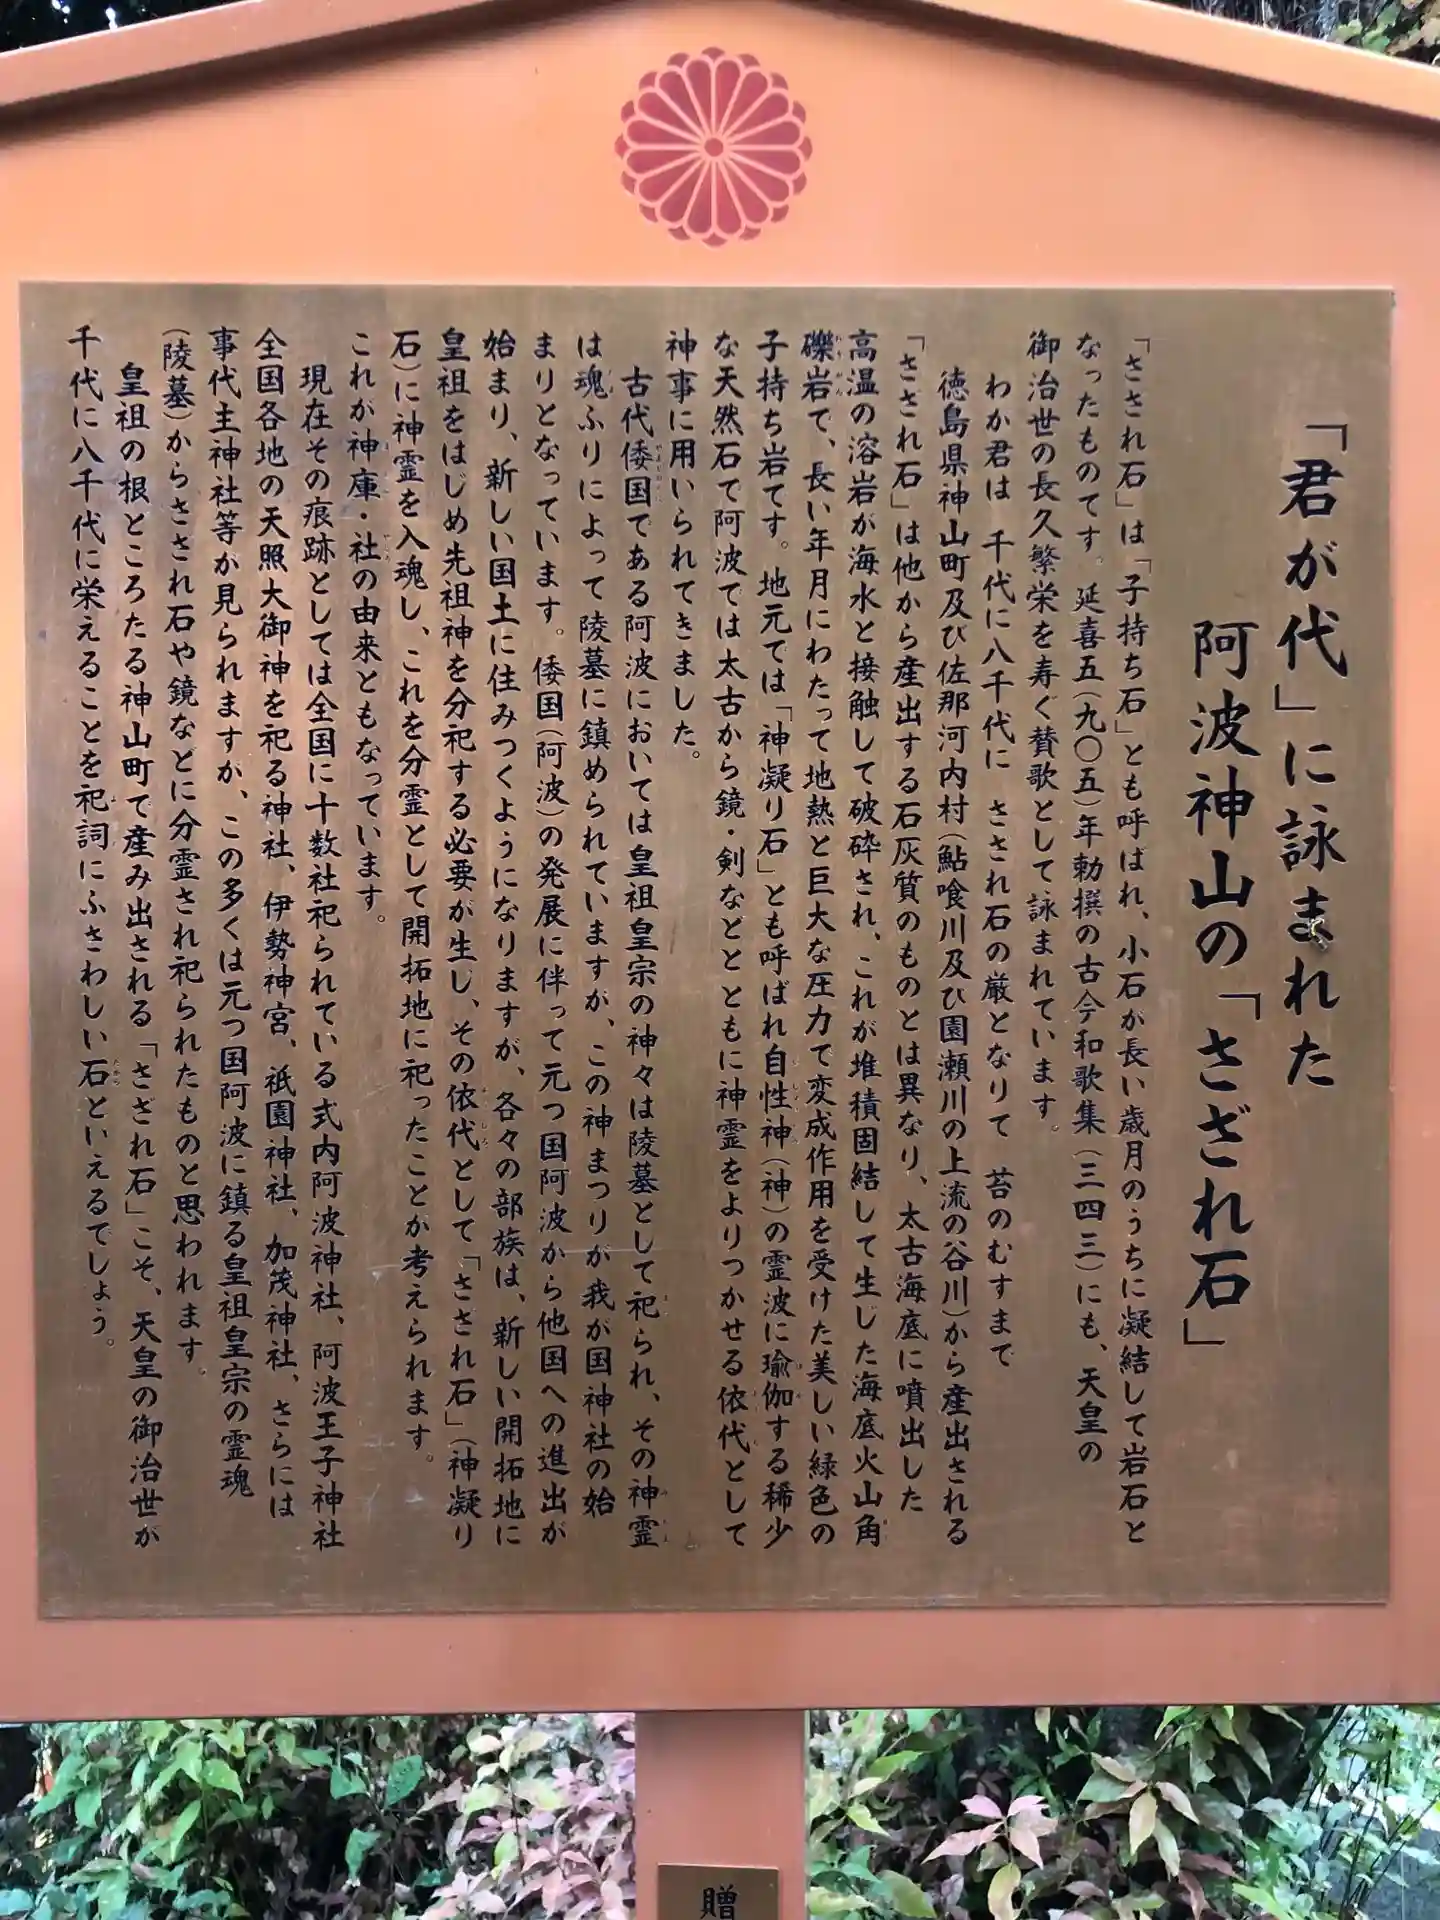 「君が代」に詠まれた
阿波神山の「さざれ石」
「さざれ石」は「子持ち石」とも呼ばれ、小石が長い歳月のうちに凝結して岩石と
なったものです。延喜五(九〇五)年勅撰の古今和歌集(三四三)にも、天皇の
御治世の長久繁栄を寿ぐ賛歌として詠まれています。
わが君は 千代に八千代に さざれ石の厳となりて 苔のむすまで
徳島県神山町及び佐那河内村(鮎喰川及び園瀬川の上流の谷川)から産出される
「さざれ石」は他から産出する石灰質のものとは異なり、太古海底に噴出した
高温の溶岩が海水と接触して破砕され、これが堆積固結して生じた海底火山角
礫岩で、長い年月にわたって地熱と巨大な圧力で変成作用を受けた美しい緑色の
子持ち岩です。地元では「神凝り石」とも呼ばれ自性神(神)の霊波に瑜伽する稀少
な天然石で阿波では太古から鏡・剣などとともに神霊をよりつかせる依代として
神事に用いられてきました。
古代倭国である阿波においては皇祖皇宗の神々は陵墓として祀られ、その神霊
は魂ふりによって陵墓に鎮められていますが、この神まつりが我が国神社の始
まりとなっています。倭国(阿波)の発展に伴って元つ国阿波から他国への進出が
始まり、新しい国土に住みつくようになりますが、各々の部族は、新しい開拓地に
皇祖をはじめ先祖神を分祀する必要が生し、その依代として「さざれ石」(神凝り
石)に神霊を入魂し、これを分霊として開拓地に祀ったことが考えられます。
これが神庫・社の由来ともなっています。
現在その痕跡としては全国に十数社祀られている式内阿波神社、阿波王子神社
全国各地の天照大御神を祀る神社、伊勢神宮、祇園神社、加茂神社、さらには
事代主神社等が見られますが、この多くは元つ国阿波に鎮る皇祖皇宗の霊魂
(陵墓)からさざれ石や鏡などに分霊され祀られたものと思われます。
皇祖の根ところたる神山町で産み出される「さざれ石」こそ、天皇の御治世が
千代に八千代に栄えることを祀詞にふさわしい石といえるでしょう。
贈